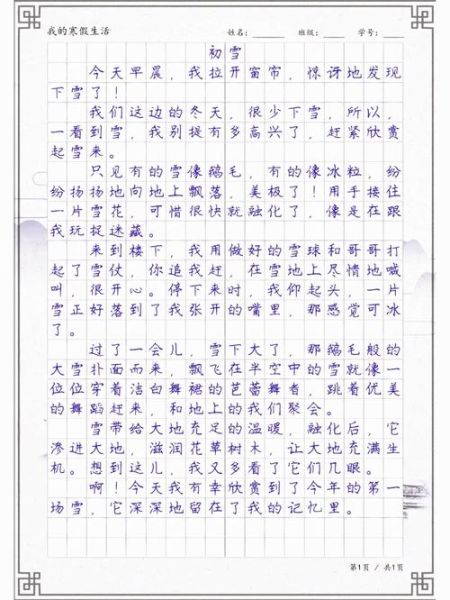 我的寒假生活 姓名：______ 班级：______ 学号：______
初雪
今天早晨，我拉开窗帘，惊讶地发现
下雪了！
我们这边的冬天，很少下雪，所以，
一看到雪，我别提有多高兴了，赶紧欣赏
起雪来。
只见有的雪像鹅毛，有的像冰粒，纷
纷扬扬地向地上飘落，美极了！用手接住
一片雪花，可惜很快就融化了，像是在跟
我玩捉迷藏。
来到楼下，我用做好的雪球和哥哥打
起了雪仗，你追我赶，在雪地上尽情地喊
叫，很开心。停下来时，我仰起头，一片
雪正好落到了我张开的嘴里，那感觉可冰
了。
过了一会儿，雪下大了，那鹅毛般的
大雪扑面而来，飘飞在半空中的雪就像一
位位穿着洁白舞裙的芭蕾舞者，跳着优美
的舞蹈赶来，和地上的我们聚会。
雪带给大地充足的温暖，融化后，它
渗进大地，滋润花草树木，让大地充满生
机。想到这儿，我又多看了它们几眼。
啊！今天我有幸欣赏到了今年的第一
场雪，它深深地留在了我的记忆里。
第1页 / 共1页